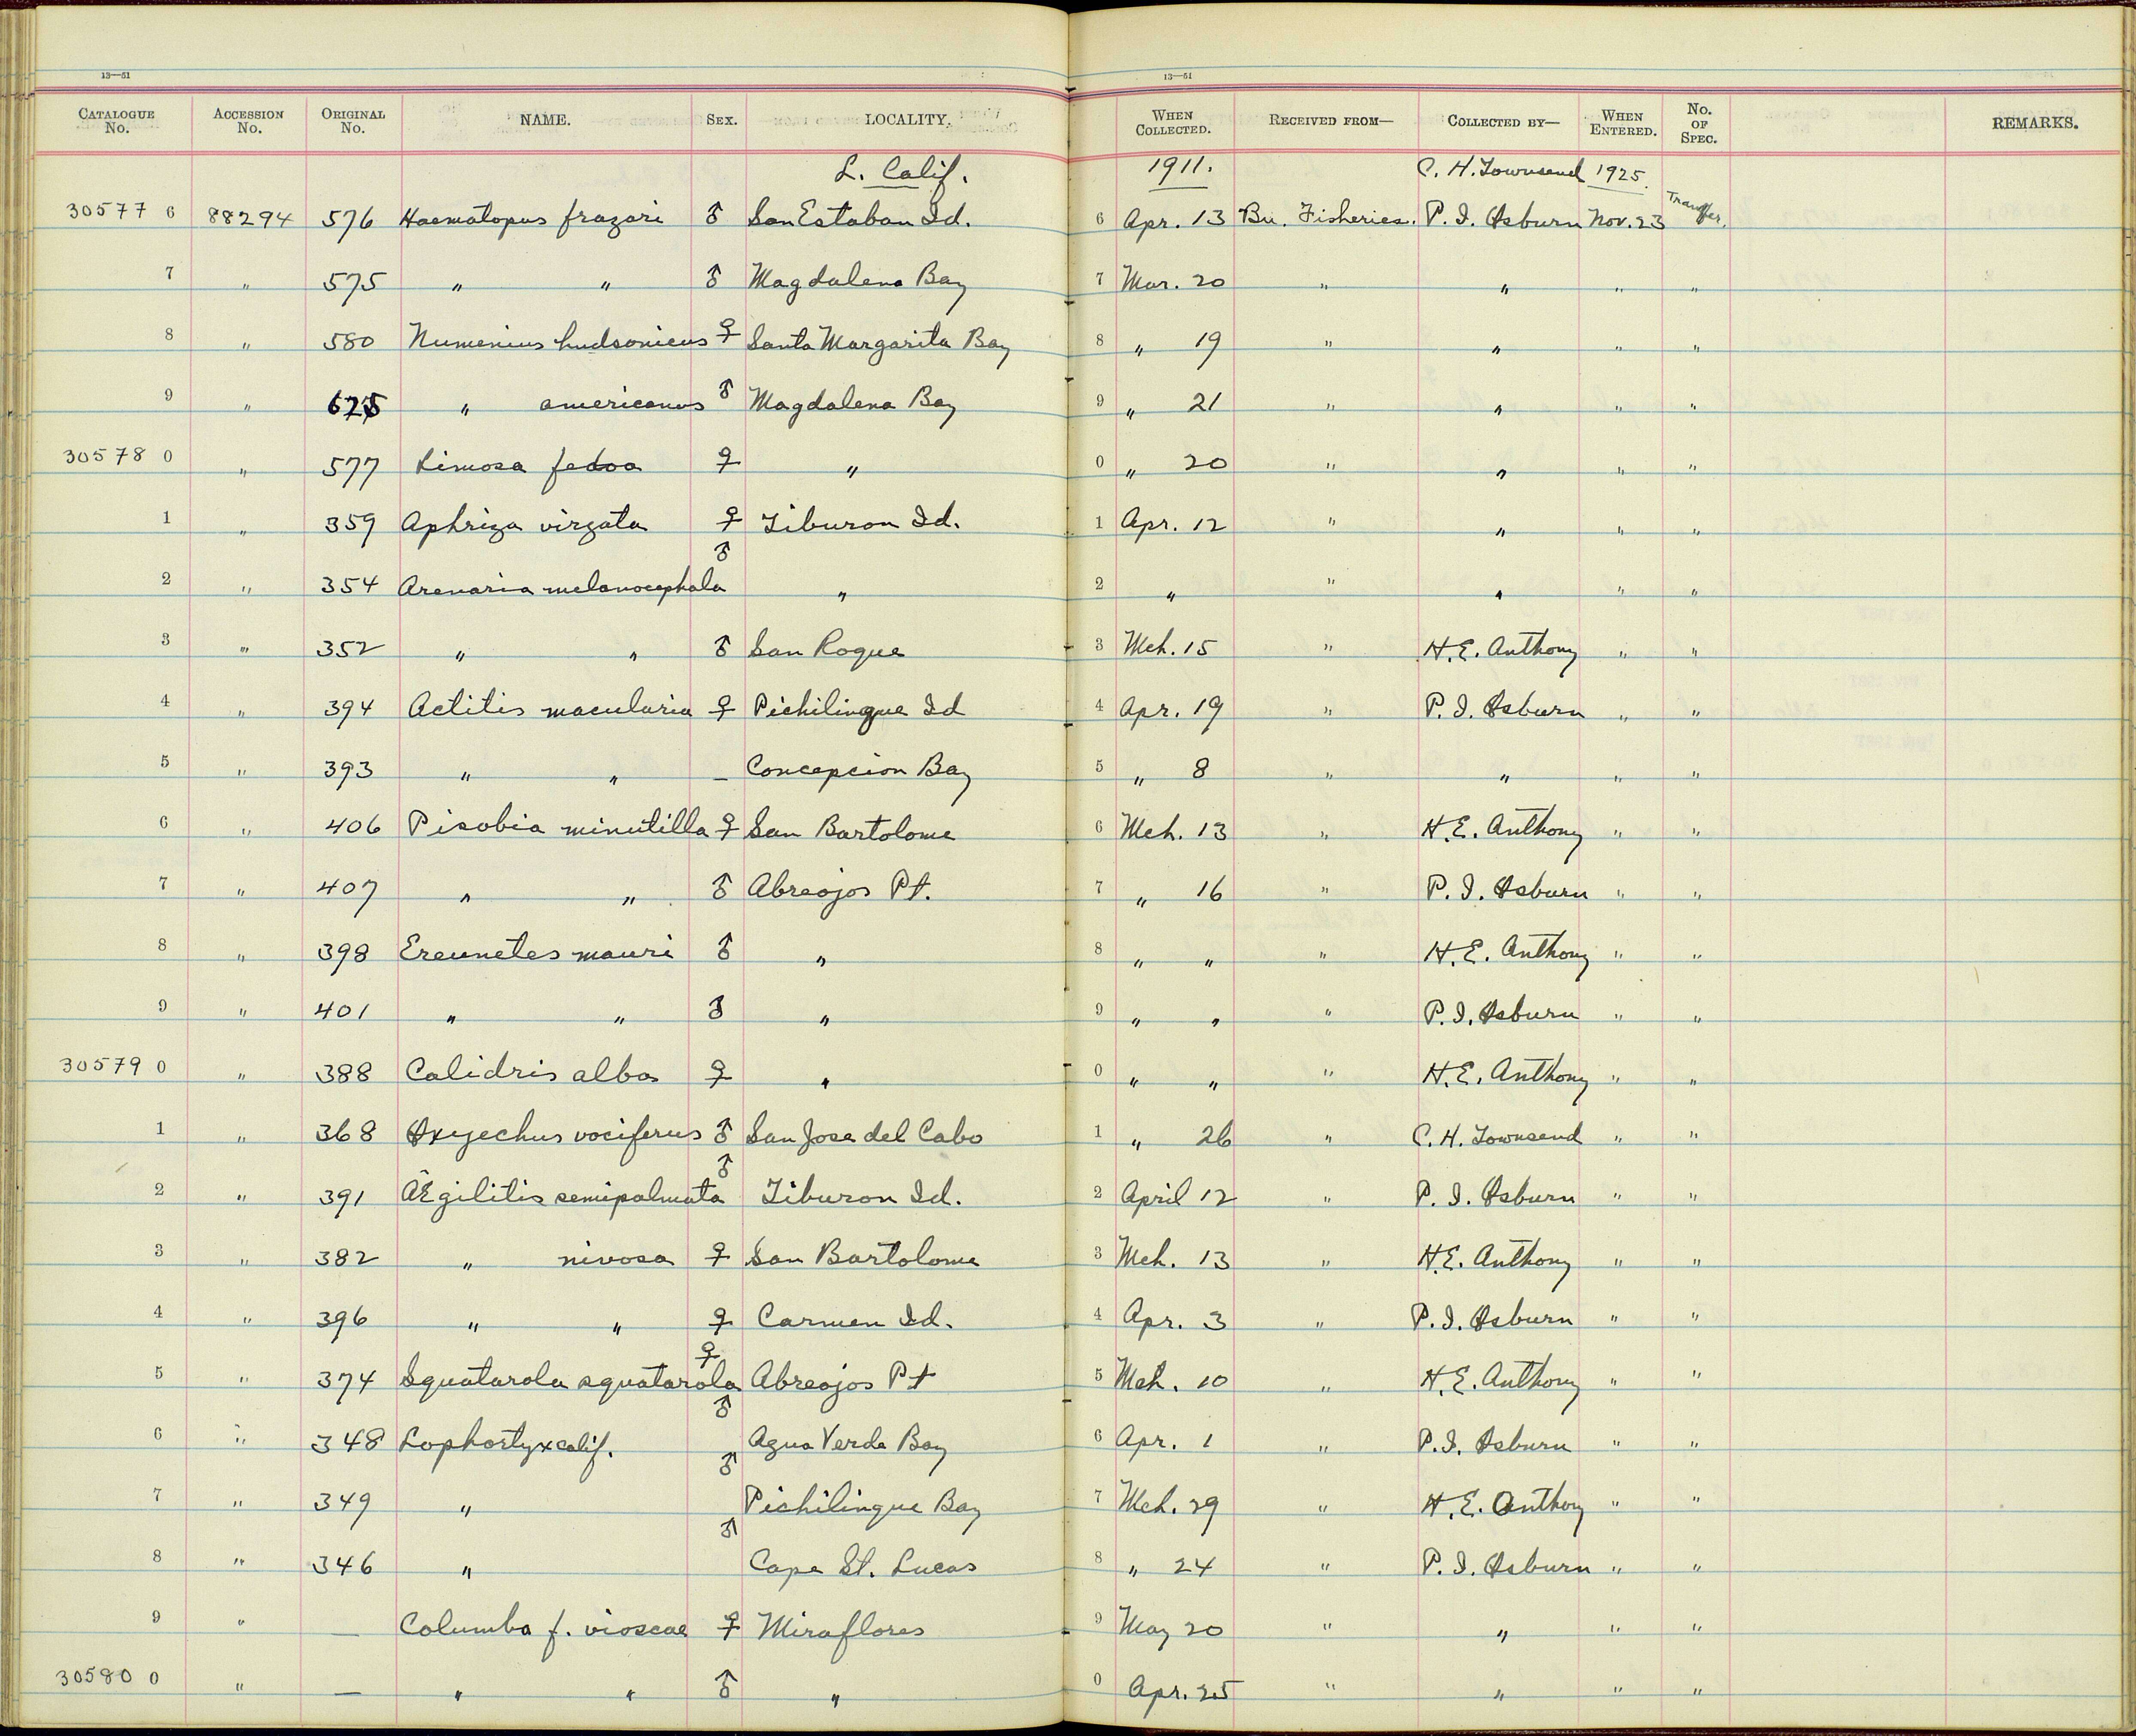 13—51 13—51
CATALOGUE No. ACCESSION No. ORIGINAL No. NAME. SEX. LOCALITY. WHEN COLLECTED. RECEIVED FROM— COLLECTED BY— WHEN ENTERED. No. OF SPEC. REMARKS.
L. Calif. 1911. C. H. Townsend 1925.
30577 6 88294 576 Haematopus frazari ♂ San Estaban Id. 6 Apr. 13 Bu. Fisheries. P. I. Osburn Nov. 23 Transfer.
7 " 575 " " ♂ Magdalena Bay 7 Mar. 20 " " " "
8 " 580 Numenius hudsonicus ♀ Santa Margarita Bay 8 " 19 " " " "
9 " 625 " americanus ♂ Magdalena Bay 9 " 21 " " " "
30578 0 " 577 Limosa fedoa ♀ " 0 " 20 " " " "
1 " 359 Aphriza virgata ♀ Tiburon Id. 1 Apr. 12 " " " "
2 " 354 Arenaria melanocephala ♂ " 2 " " " " "
3 " 352 " " ♂ San Roque 3 Mch. 15 " H. E. Anthony " "
4 " 394 Actitis macularia ♀ Pichilinque Id 4 Apr. 19 " P. I. Osburn " "
5 " 393 " " — Concepcion Bay 5 " 8 " " " "
6 " 406 Pisobia minutilla ♀ San Bartolome 6 Mch. 13 " H. E. Anthony " "
7 " 407 " " ♂ Abreojos Pt. 7 " 16 " P. I. Osburn " "
8 " 398 Ereunetes mauri ♂ " 8 " " " H. E. Anthony " "
9 " 401 " " ♂ " 9 " " " P. I. Osburn " "
30579 0 " 388 Calidris alba ♀ " 0 " " " H. E. Anthony " "
1 " 368 Oxyechus vociferus ♂ San Jose del Cabo 1 " 26 " C. H. Townsend " "
2 " 391 Ægilitis semipalmata ♂ Tiburon Id. 2 April 12 " P. I. Osburn " "
3 " 382 " nivosa ♀ San Bartolome 3 Mch. 13 " H. E. Anthony " "
4 " 396 " " ♀ Carmen Id. 4 Apr. 3 " P. I. Osburn " "
5 " 374 Squatarola squatarola ♀ Abreojos Pt 5 Mch. 10 " H. E. Anthony " "
6 " 348 Lophortyx calif. ♂ Agua Verde Bay 6 Apr. 1 " P. I. Osburn " "
7 " 349 " ♂ Pichilinque Bay 7 Mch. 29 " H. E. Anthony " "
8 " 346 " ♂ Cape St. Lucas 8 " 24 " P. I. Osburn " "
9 " — Columba f. vioscae ♀ Miraflores 9 May 20 " " " "
30580 0 " — " " ♂ " 0 Apr. 25 " " " "